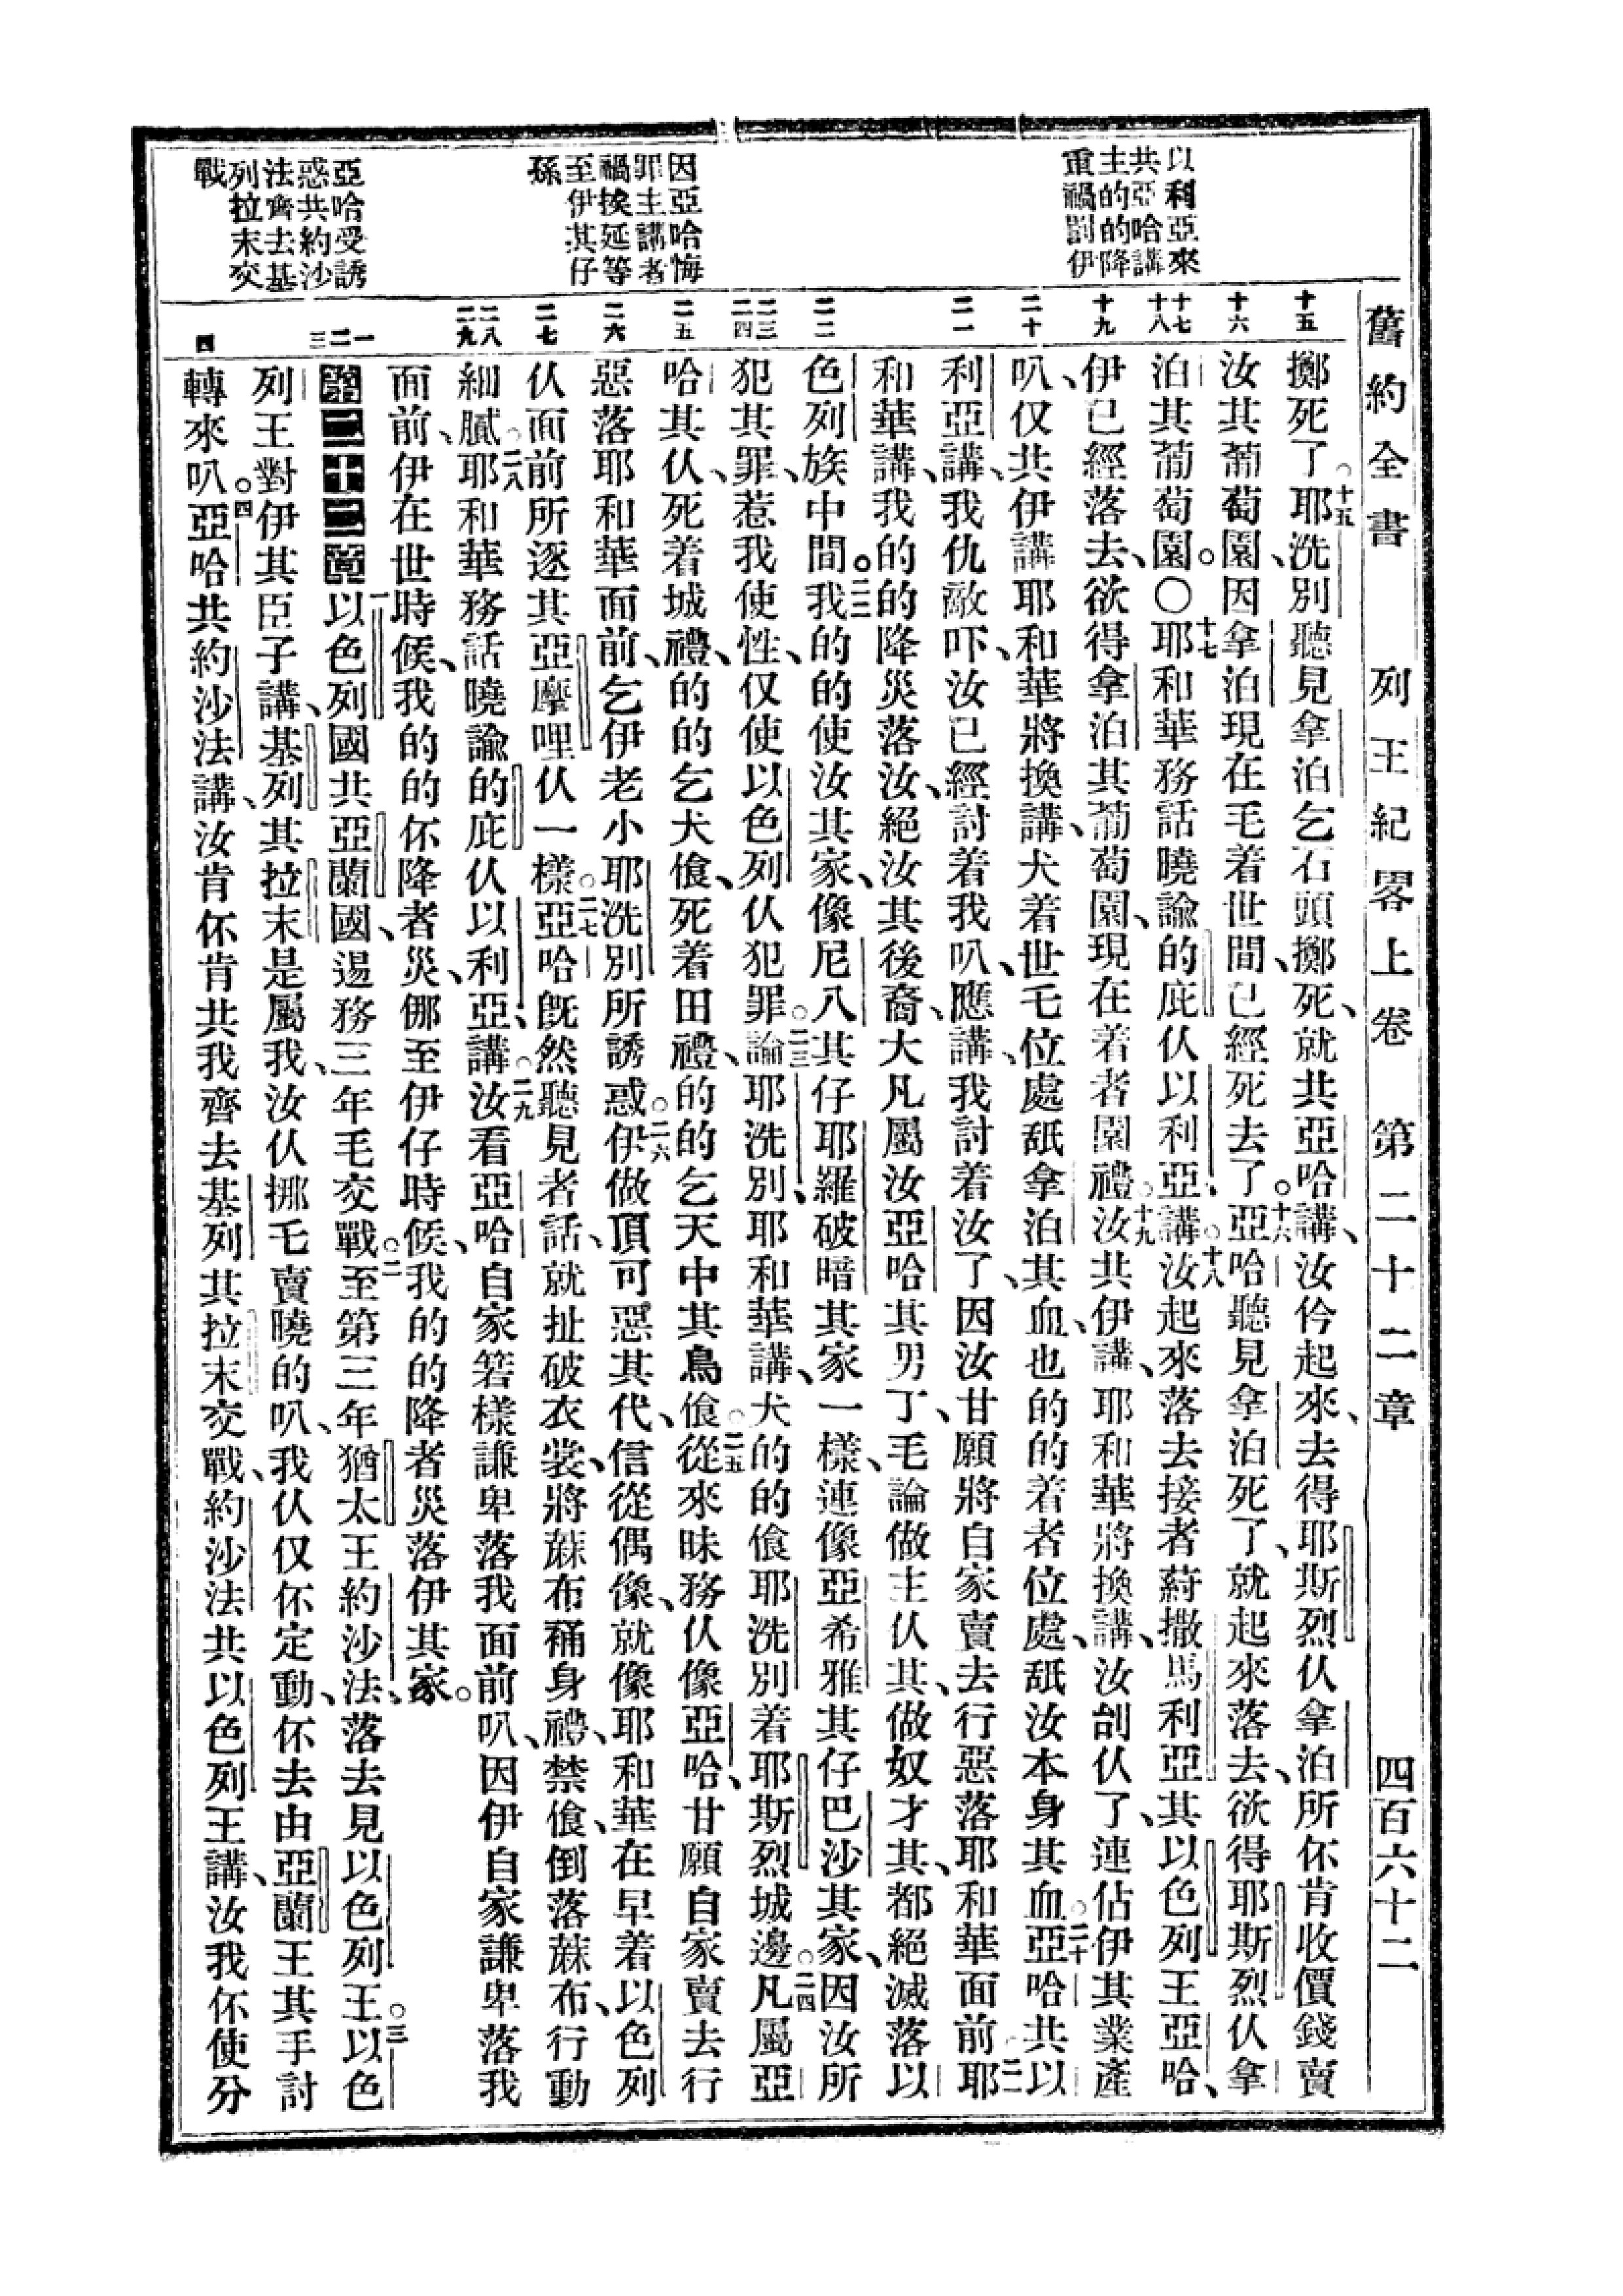 舊約全書　列王紀畧上卷　第二十二章　四百六十二
以利亞來
共亞哈講
主的的降
重禍罰伊
因亞哈悔
罪主講者
禍挨延等
至伊其仔
孫
亞哈受誘
惑共約沙
法齊去基
列拉末交
戰
十五
十六
十七
十八
十九
二十
二一
二二
二三
二四
二五
二六
二七
二八
二九
一
二
三
四
擲死了。十五耶洗別聽見拿泊乞石頭擲死、就共亞哈講、汝仱起來、去得耶斯烈仈拿泊所伓肯收價錢賣
汝其葡萄園、因拿泊現在毛着世間、已經死去了。十六亞哈聽見拿泊死了、就起來落去、欲得耶斯烈仈拿
泊其葡萄園。〇十七耶和華務話曉諭的庇仈以利亞、講。十八汝起來落去接者蒔撒馬利亞其以色列王亞哈、
伊已經落去、欲得拿泊其葡萄園、現在着者園禮。十九汝共伊講、耶和華將換講、汝刣仈了、連佔伊其業產
叭、仅共伊講、耶和華將換講、犬着世乇位處舐拿泊其血、也的的着者位處、舐汝本身其血。二十亞哈共以
利亞講、我仇敵吓、汝已經討着我叭、應講、我討着汝了、因汝甘願將自家賣去、行惡落耶和華面前、二一耶
和華講、我的的降災落汝、絕汝其後裔、大凡屬汝亞哈其男丁、毛論做主仈其、做奴才其、都絕滅落以
色列族中間。二二我的的使汝其家、像尼八其仔耶羅破暗其家一樣、連像亞希雅其仔巴沙其家、因汝所
犯其罪、惹我使性、仅使以色列仈犯罪。二三論耶洗別、耶和華講、犬的的飡耶洗別着耶斯烈城邊。二四凡屬亞
哈其仈、死着城禮、的的乞犬飡、死着田禮、的的乞天中其鳥飡。二五從來昧務仈像亞哈、甘願自家賣去行
惡落耶和華面前、乞伊老小耶洗別所誘惑。二六伊做頂可惡其代、信從偶像、就像耶和華在早着以色列
仈面前所逐其亞摩哩仈一樣。二七亞哈旣然聽見者話、就扯破衣裳、將蔴布䄪身禮、禁飡、倒落蔴布、行動
細膩。二八耶和華務話曉諭的庇仈以利亞、講。二九汝看亞哈自家箬樣謙卑落我面前叭、因伊自家謙卑落我
面前、伊在世時候、我的的伓降者災、㑚至伊仔時候、我的的降者災落伊其家。
第二十二章一以色列國共亞蘭國、逿務三年毛交戰。二至第三年猶太王約沙法、落去見以色列王。三以色
列王對伊其臣子講、基列其拉末是屬我、汝仈挪乇賣曉的叭、我仈仅伓定動、伓去由亞蘭王其手討
轉來叭。四亞哈共約沙法講、汝肯伓肯共我齊去基列其拉末交戰、約沙法共以色列王講、汝我伓使分